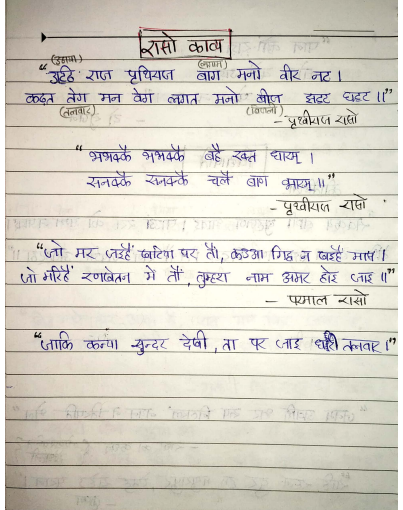 रासो काव्य
(उठाया) (लगाम)
“उट्ठि राज पृथिराज बाग मनो वीर नट।
कढ़त तेग मन वेग लगत मनो बीज झट्ट घट्ट॥”
(तलवार) (बिजली)
– पृथ्वीराज रासो
“भभक्कै भभक्कै बहै रक्त धारम्।
सनक्कै सनक्कै चलै बाण भारम्॥”
– पृथ्वीराज रासो
“जो मर जइहैं खटिया पर तौ, कउआ गिद्ध न खइहैं मांस।
जो मरिहैं रणखेतन मे तौ, तुम्हरा नाम अमर होइ जाइ॥”
– परमाल रासो
“जाकि कन्या सुन्दर देखी, ता पर जाइ धरी तलवार।”